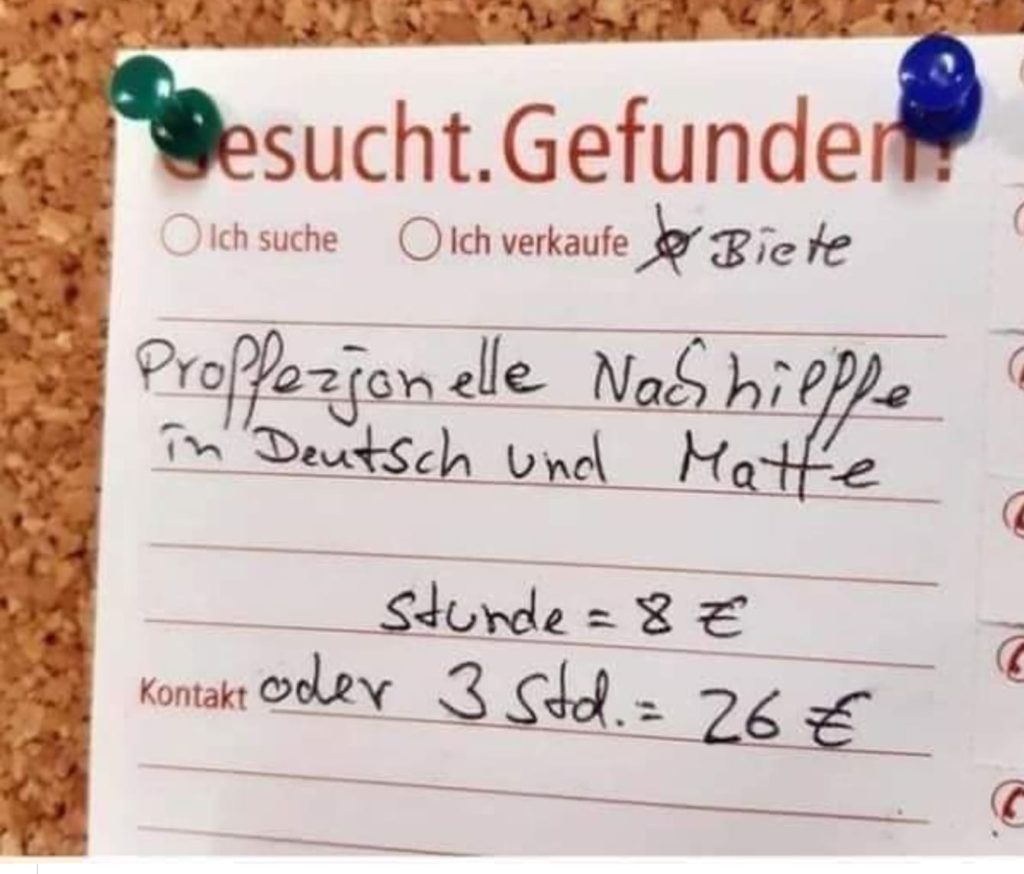 Gesucht.Gefunden!
Ich suche Ich verkaufe Biete
Proffezjonelle Nachhilfffe
in Deutsch und Matte
Stunde = 8 €
Kontakt oder 3 Std. = 26 €